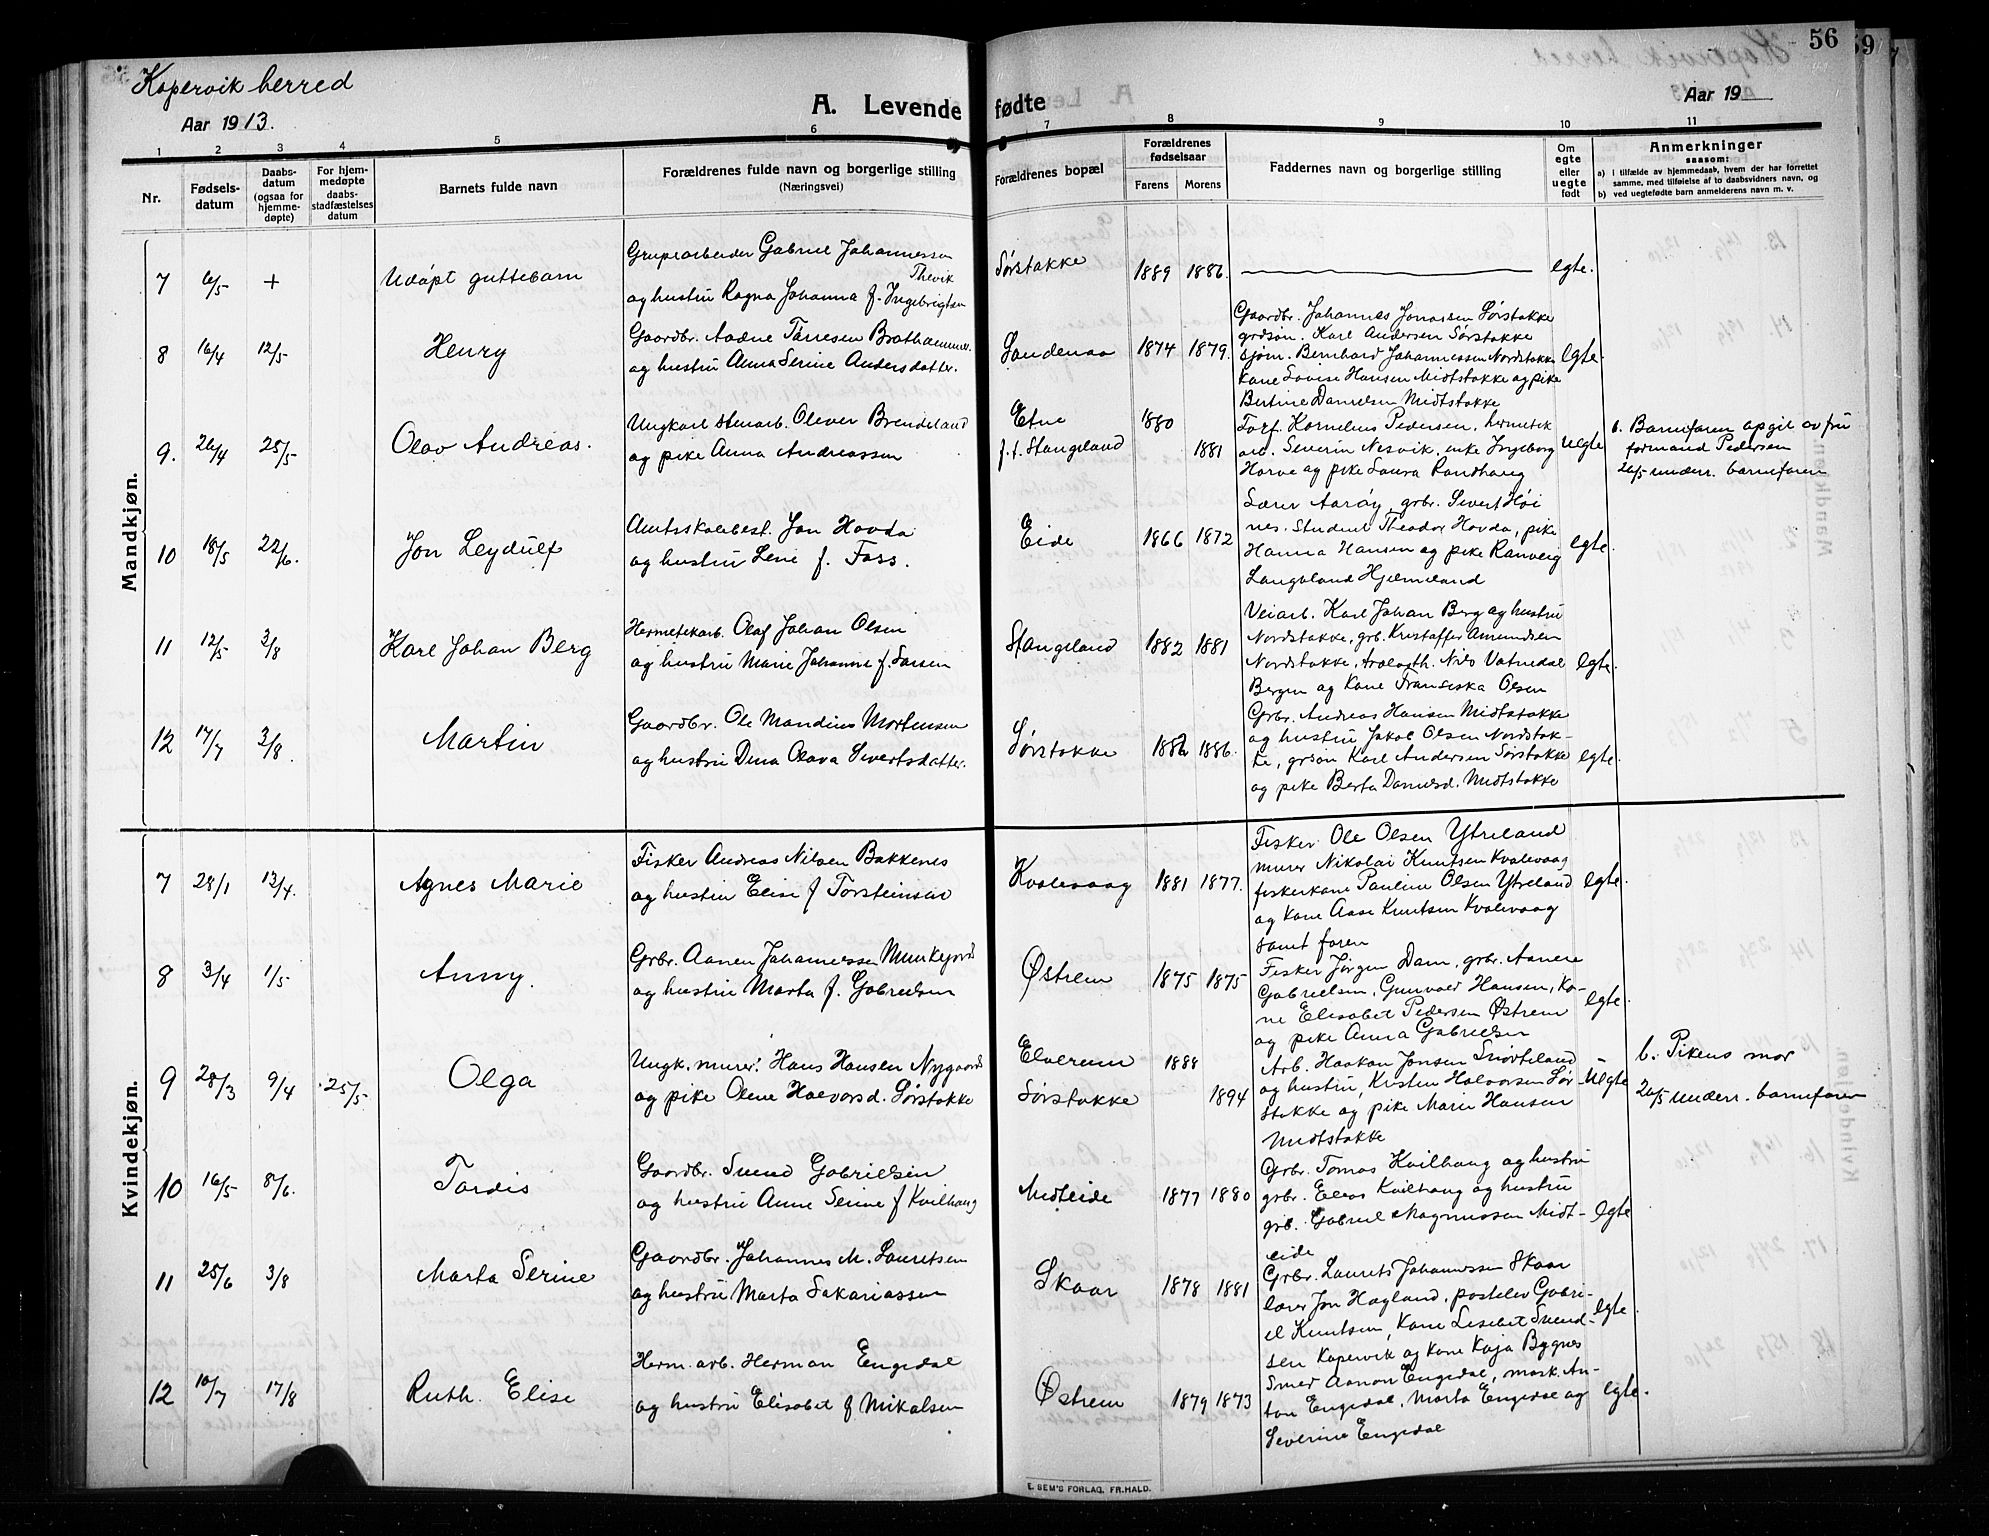 Kopervik herred
Aar 1913.
A. Levende fødte
Aar 19
56
59
1 2 3 4 5 6 7 8 9 10 11
Nr.
Fødselsdatum
Daabsdatum (ogsaa for hjemmedøpte)
For hjemmedøpte daabsstadfæstelses datum
Barnets fulde navn
Forældrenes fulde navn og borgerlige stilling
(Næringsvei)
Forældrenes bopæl
Forældrenes fødselsaar
Farens Morens
Faddernes navn og borgerlige stilling
Om egte eller uegte født
Anmerkninger
saasom:
a) i tilfælde av hjemmedaab, hvem der har forrettet samme, med tilføielse af to daabsvidners navn, og
b) ved uegtefødte barn anmelderens navn m. v.
Mandkjøn.
7 6/5 + Udøpt guttebarn
Grupearbeider Gabriel Johannessen Thevik
og hustru Ragna Johanna f. Ingebrigtsen
Sørstokke 1889 1886. egte.
8 16/4 12/5 Henry
Gaardbr. Aadne Tørresen Brathammer
og hustru Anna Serine Andersdatter.
Sandenaa 1874 1879.
Gaardbr. Johannes Jonassen Sørstokke
grdsøn. Karl Andersen Sørstokke
sjøm. Bernhard Johannessen Nordstokke
kone Lovise Hansen Midtstokke og pike
Bertine Danielsen Midtstokke
egte.
9. 26/4 25/5 Olav Andreas.
Ungkarl stenarb. Oliver Brendeland
og pike Anna Andreassen
Etne 1880
f. f. Stangeland 1881
Torf. Kornelius Pedersen, hermetik
arb. Severin Nesvik, enke Ingeborg
Horve og pike Laura Randhaug
uegte
b. Barnefaren opgit av fru
formand Pedersen
26/5 underr. barnefaren
10 18/5 22/6. Jon Leydulf
Amtsskolebest. Jon Hovda
og hustru Leni f. Foss.
Eide 1866 1872
Lærer Aarøy, grbr. Sivert Høi
nes. Student Theodor Hovda, pike
Hanna Hansen og pike Ranveig
Langeland Hjelmeland
egte.
11 12/5 3/8 Karl Johan Berg
Hermetekarb. Olaf Johan Olsen
og hustru Marie Johanne f. Larsen
Stangeland 1882 1881
Veiarb. Karl Johan Berg og hustru
Nordstokke, grb. Kristoffer Amundsen
Nordstokke, Nils Vatnedal
Bergen og kone Franciska Olsen
egte.
12 17/7 3/8. Martin
Gaardbr. Ole Mandius Mortensen
og hustru Dina Olava Sivertsdatter.
Sørstokke 1882 1886.
Grbr. Andreas Hansen Midtstokke
og hustru Jakob Olsen Nordstok-
ke, grsøn Karl Andersen Sørstokke
og pike Berta Danielsd. Midtstokke
egte.
Kvindekjøn.
7 28/1 13/4. Agnes Marie
Fisker Andreas Nilsen Bakkenes
og hustru Elise f Torsteinsen
Kvalevaag 1881 1877.
Fisker Ole Olsen Ytreland
murer Nikolai Knutsen Kvalevaag
fiskerkone Pauline Olsen Ytreland
og kone Aase Knutsen Kvalevaag
samt faren
egte.
8 3/4 1/5 Anny.
Grbr. Aanen Johannessen Munkejord
og hustru Marta f. Gabrielsen
Østrem 1875 1875
Fisker Jørgen Dam, grbr. Aanen
Gabrielsen, Gunvald Hansen, Ko-
ne Elisabet Pedersen Østrem
og pike Anna Gabrielsen
egte.
9 28/3 9/4 25/5 Olga
Ungk. murer. Hans Hansen Nygaard
og pike Olene Halvorsd. Sørstokke
Elverum 1888
Sørstokke 1894
Arb. Haakon Jonsen Snørteland
og hustru, Kristen Halvorsen Sør-
stokke og pike Marie Hansen
Midtstokke
uegte
b. Pikens mor
26/5 underr. barnefaren
10 16/5 8/6. Tordis
Gaardbr. Svend Gabrielsen
og hustru Anne Serine f Kvilhaug
Midteide 1877 1880
Grbr. Tomas Kvilhaug og hustru
grbr. Elias Kvilhaug og hustru
grb. Gabriel Magnussen Midt-
eide
egte
11 25/6 3/8 Marta Serine
Gaardbr. Johannes M. Lauritsen
og hustru Marta Sakariassen
Skaar 1878 1881
Grbr. Laurits Johannessen Skaar
lærer Jon Hagland, postelev Gabri-
el Knutsen, kone Lisebet Svend-
sen Kopervik og kone Kaja Bygnes
egte
12 10/7 17/8 Ruth. Elise
Herm. arb. Herman Engedal
og hustru Elisabet f Mikalsen
Østrem 1879 1873
Smed Aanon Engedal, mask. An-
ton Engedal, Marta Engedal og
Severine Engedal
egte.
E. SEM'S FORLAG, FR.HALD.